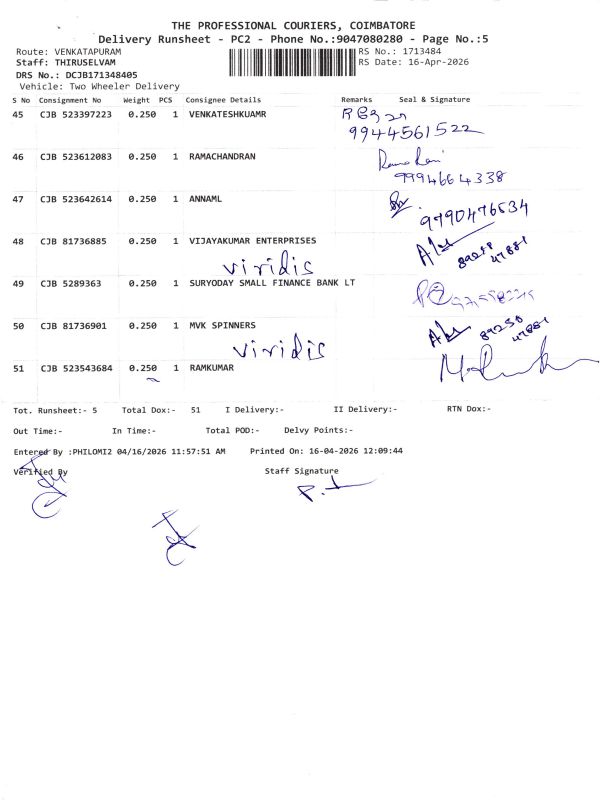 THE PROFESSIONAL COURIERS, COIMBATORE
Delivery Runsheet - PC2 - Phone No.:9047080280 - Page No.:5
Route: VENKATAPURAM RS No.: 1713484
Staff: THIRUSELVAM RS Date: 16-Apr-2026
DRS No.: DCJB171348405
Vehicle: Two Wheeler Delivery
S No Consignment No Weight PCS Consignee Details Remarks Seal & Signature
45 CJB 523397223 0.250 1 VENKATESHKUAMR
9944561522
46 CJB 523612083 0.250 1 RAMACHANDRAN
9994664338
47 CJB 523642614 0.250 1 ANNAML
9790476534
48 CJB 81736885 0.250 1 VIJAYAKUMAR ENTERPRISES
viridis
49 CJB 5289363 0.250 1 SURYODAY SMALL FINANCE BANK LT
50 CJB 81736901 0.250 1 MVK SPINNERS
viridis
51 CJB 523543684 0.250 1 RAMKUMAR
Tot. Runsheet:- 5 Total Dox:- 51 I Delivery:- II Delivery:- RTN Dox:-
Out Time:- In Time:- Total POD:- Delvy Points:-
Entered By :PHILOMI2 04/16/2026 11:57:51 AM Printed On: 16-04-2026 12:09:44
Verified By Staff Signature